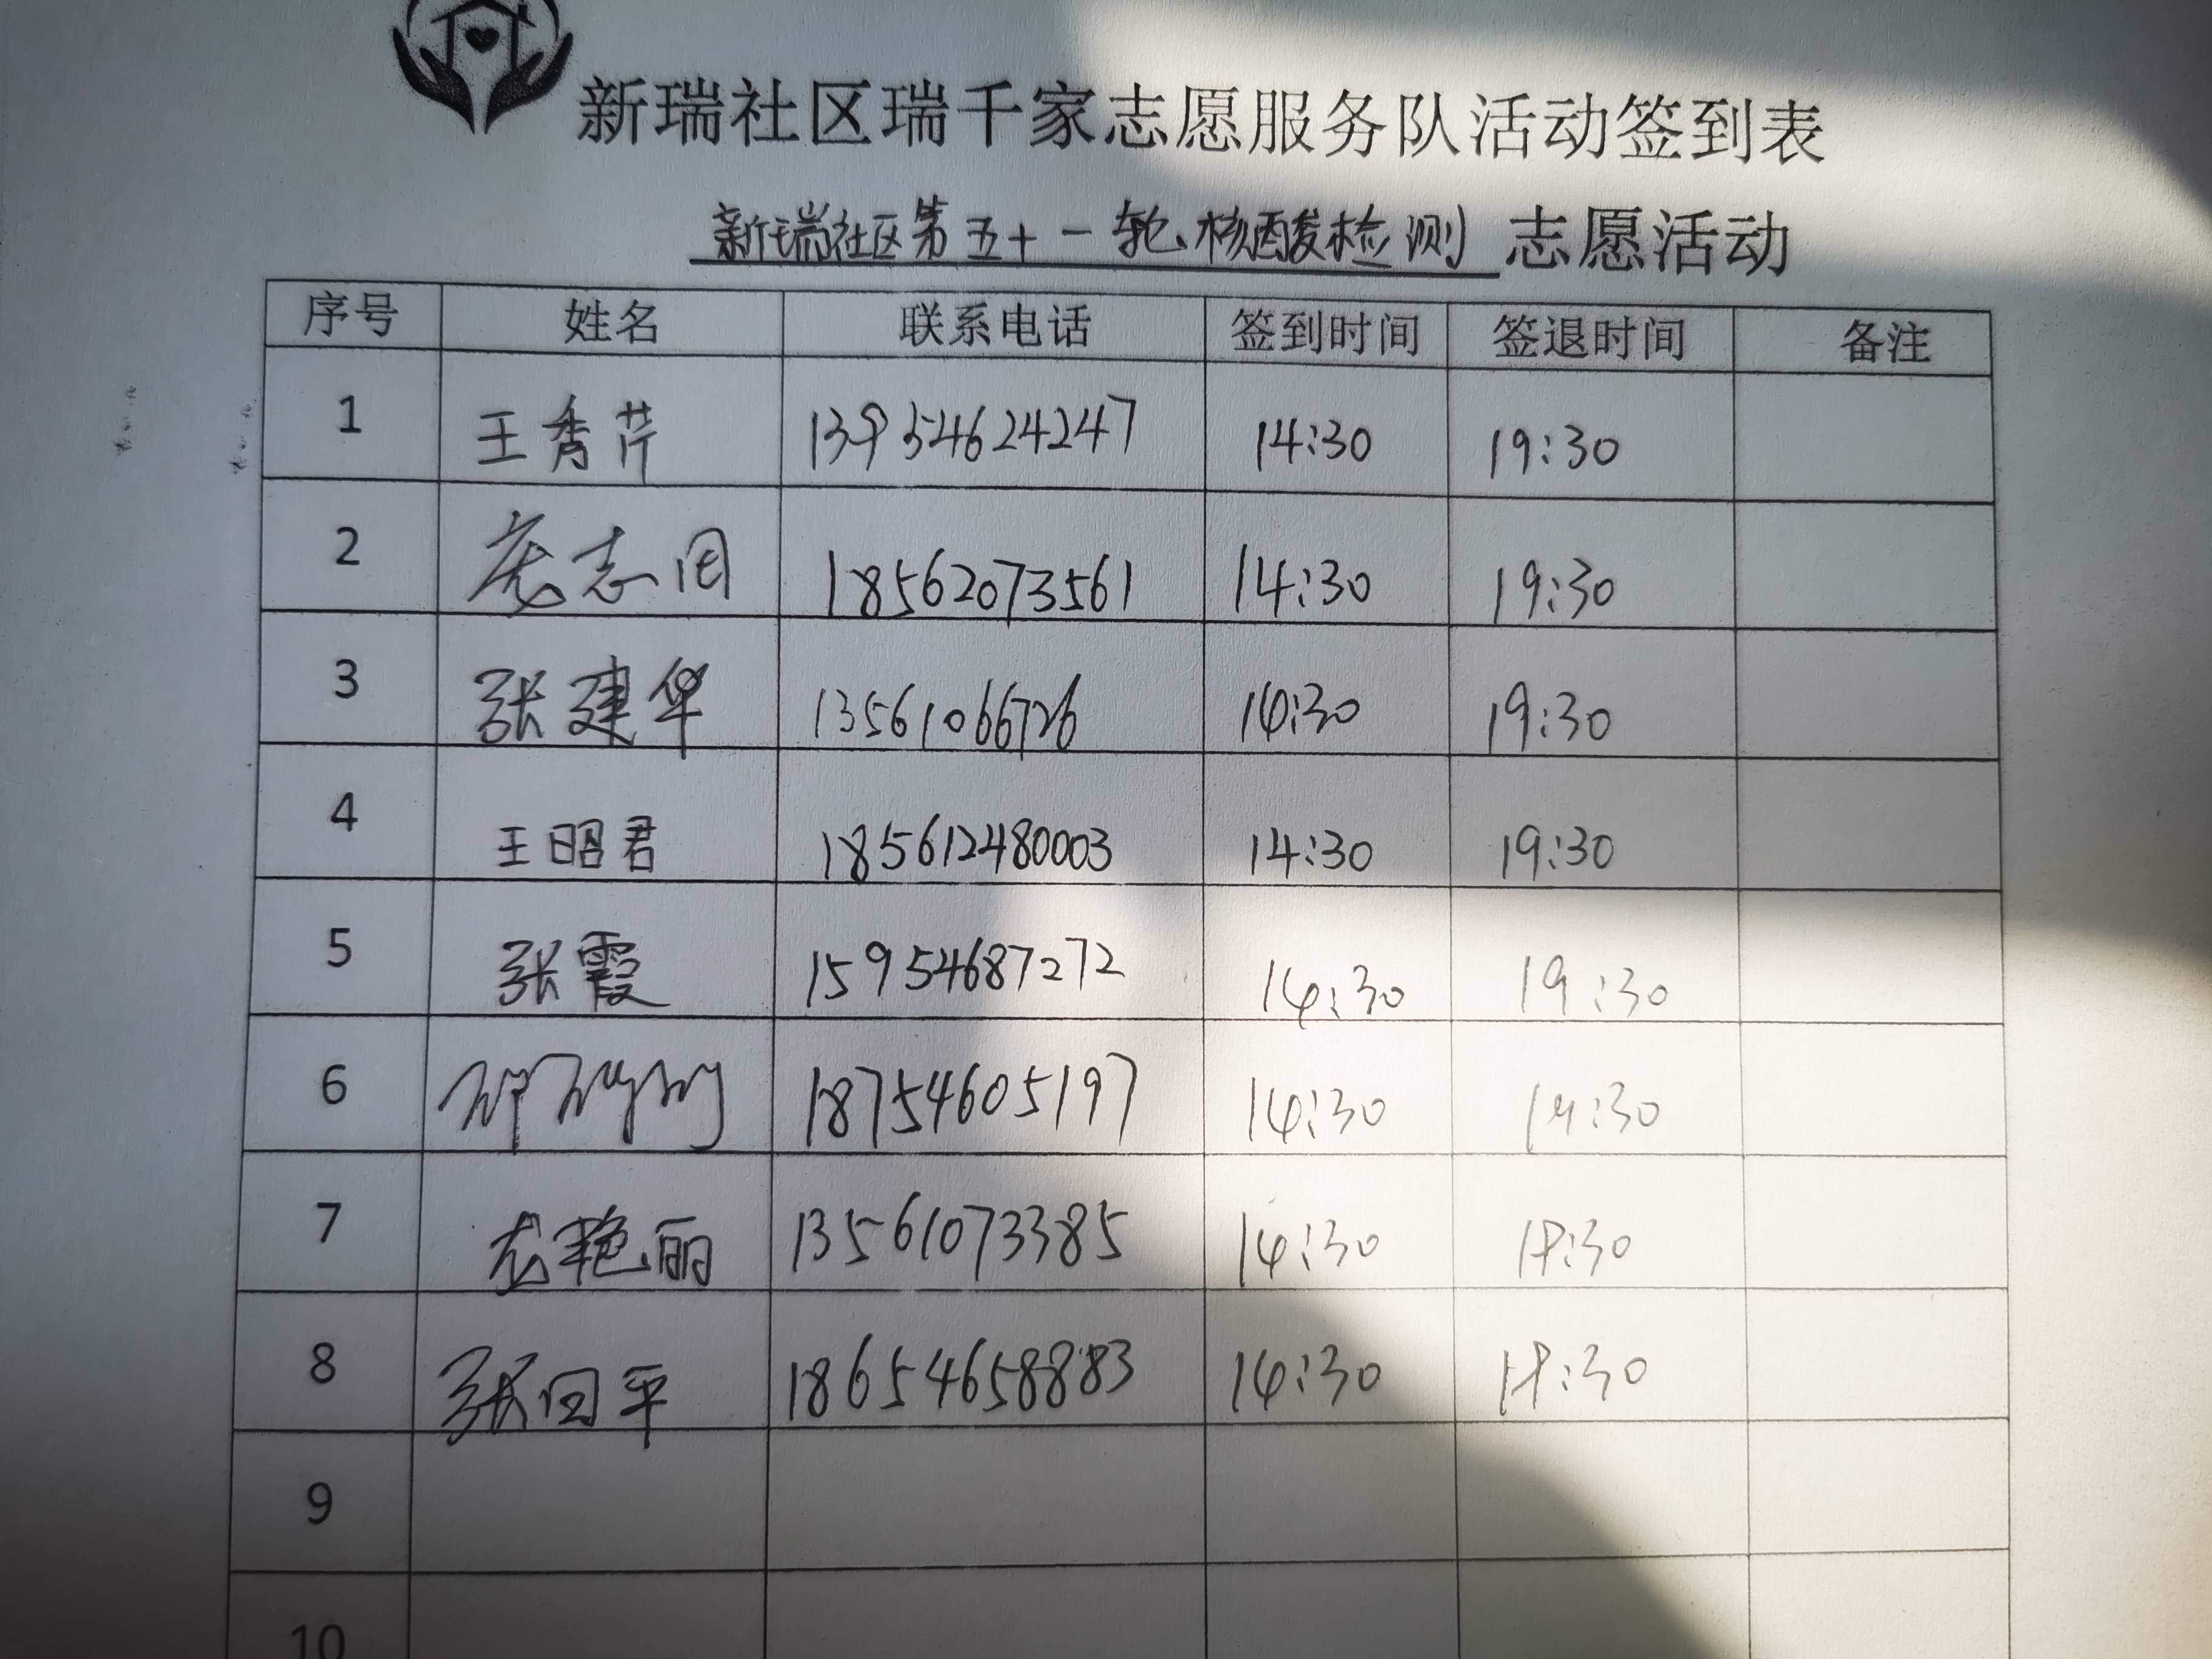 新瑞社区瑞千家志愿服务队活动签到表
新瑞社区第五十一轮核酸检测 志愿活动
序号 姓名 联系电话 签到时间 签退时间 备注
1 王秀芹 13954624247 14:30 19:30
2 志 18562073561 14:30 19:30
3 张建华 13561066726 14:30 19:30
4 王昭君 185612480003 14:30 19:30
5 张霞 15954687272 14:30 19:30
6 18754605197 14:30 19:30
7 艳丽 13561073385 14:30
8 张回平 18654658883 14:30
9
10